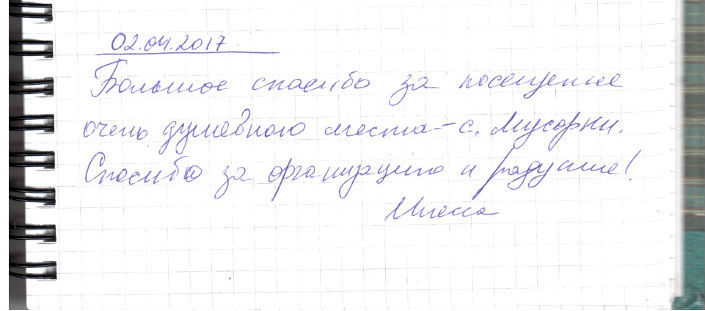 02.04.2017
Большое спасибо за посещение
очень душевного места - с. Мусорки.
Спасибо за организацию и радушие!